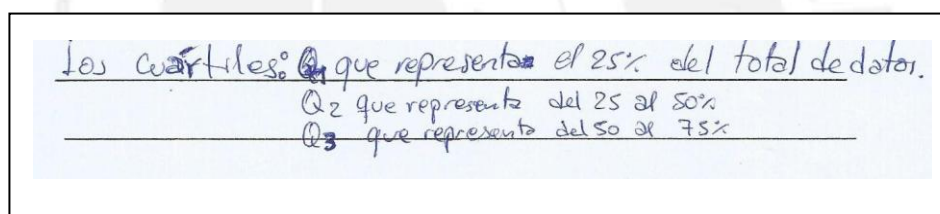 Los cuártiles: Q1 que representa el 25% del total de datos.
Q2 que representa del 25 al 50%
Q3 que representa del 50 al 75%